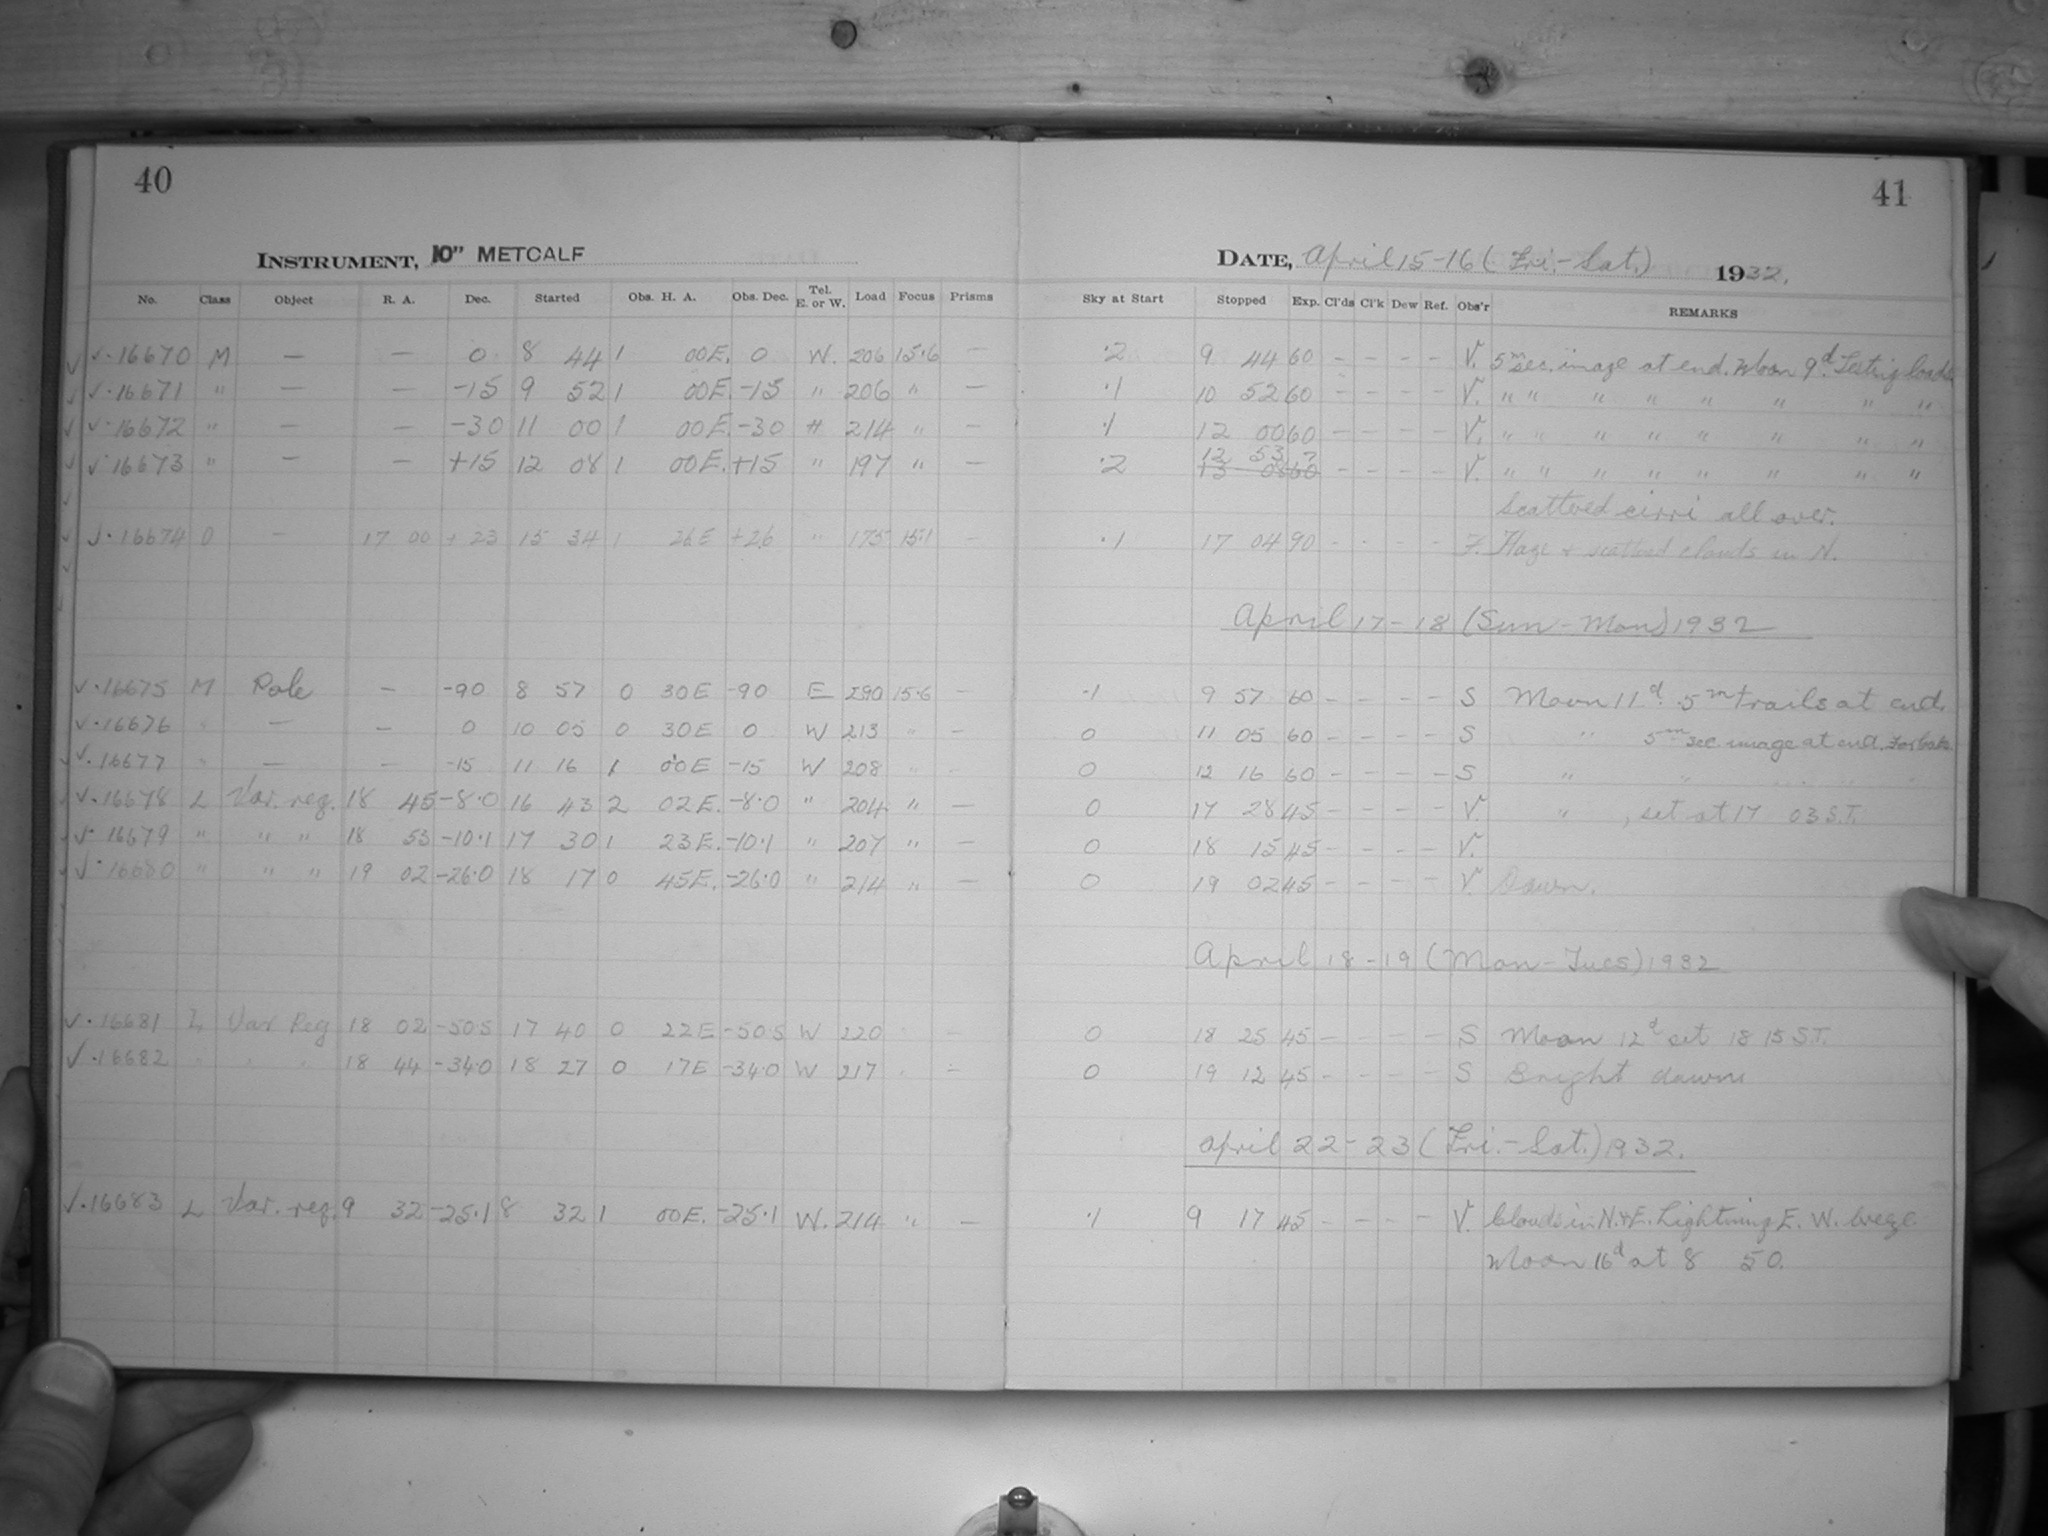 40
41
INSTRUMENT, 10" METCALF
DATE, April 15-16 (Fri.-Sat.) 1932.
No. Class Object R. A. Dec. Started Obs. H. A. Obs. Dec. Tel. E. or W. Load Focus Prisms Sky at Start Stopped Exp. Cl'ds Cl'k Dew Ref. Obs'r REMARKS
√·16670 M — — 0 8 44 1 00E. 0 W. 206 15·6 — ·2 9 44 60 - - - - V. 5m sec. image at end. Moon 9d. Testing loads
√·16671 " — — -15 9 52 1 00E. -15 " 206 " — ·1 10 52 60 - - - - V. " " " " " " " "
√·16672 " — — -30 11 00 1 00E. -30 " 214 " — ·1 12 00 60 - - - - V. " " " " " " " "
√·16673 " — — +15 12 08 1 00E. +15 " 197 " — ·2 12 53 ? 13 08 60 - - - - V. " " " " " " " "
Scattered cirri all over.
√·16674 O — 17 00 +23 15 34 1 26E +26 " 175 15·1 — ·1 17 04 90 - - - - F. Haze & scattered clouds in N.
April 17-18 (Sun-Mon) 1932
√·16675 M Pole — -90 8 57 0 30E -90 E 290 15·6 — ·1 9 57 60 - - - - S Moon 11d. 5m trails at end.
√·16676 " — — 0 10 05 0 30E 0 W 213 " — 0 11 05 60 - - - - S " 5m sec. image at end.
√·16677 " — — -15 11 16 1 00E -15 W 208 " — 0 12 16 60 - - - - S " "
√·16678 L Var. reg. 18 45 -8·0 16 43 2 02E. -8·0 " 204 " — 0 17 28 45 - - - - V. " , set at 17 03 S.T.
√·16679 " " " 18 53 -10·1 17 30 1 23E. -10·1 " 207 " — 0 18 15 45 - - - - V.
√·16680 " " " 19 02 -26·0 18 17 0 45E. -26·0 " 214 " — 0 19 02 45 - - - - V. Dawn.
April 18-19 (Mon-Tues) 1932
√·16681 L Var Reg 18 02 -50·5 17 40 0 22E -50·5 W 220 " — 0 18 25 45 - - - - S Moon 12d set 18 15 S.T.
√·16682 " " " 18 44 -34·0 18 27 0 17E -34·0 W 217 " — 0 19 12 45 - - - - S Bright dawn
April 22-23 (Fri.-Sat.) 1932.
√·16683 L Var. reg. 9 32 -25·1 8 32 1 00E. -25·1 W. 214 " — ·1 9 17 45 - - - - V. Clouds in N.+E. Lightning E. W.
Moon 16d at 8 50.